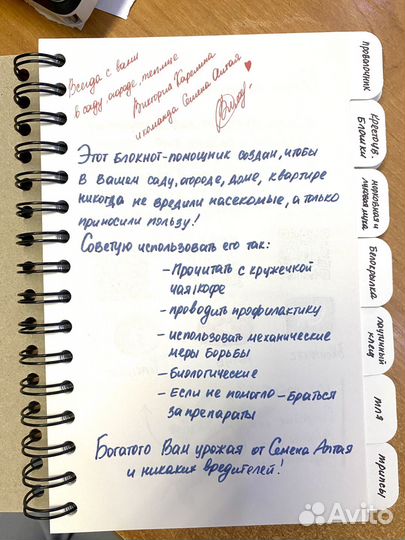 Всегда с вами
в саду, огороде, теплице
Виктория Карелина
и команда Семена Алтая
Этот блокнот-помощник создан, чтобы
в вашем саду, огороде, доме, квартире
никогда не вредили насекомые, а только
приносили пользу!
Советую использовать его так:
- Прочитать с кружечкой
чая/кофе
- проводить профилактику
- использовать механические
меры борьбы
- Биологические
- Если не помогло - Браться
за препараты
Богатого Вам урожая от Семена Алтая
и никаких вредителей!
проволочник
крестоцв.
Блошки
Белокрылка
паутинный
клещ
тля
трипсы
Avito